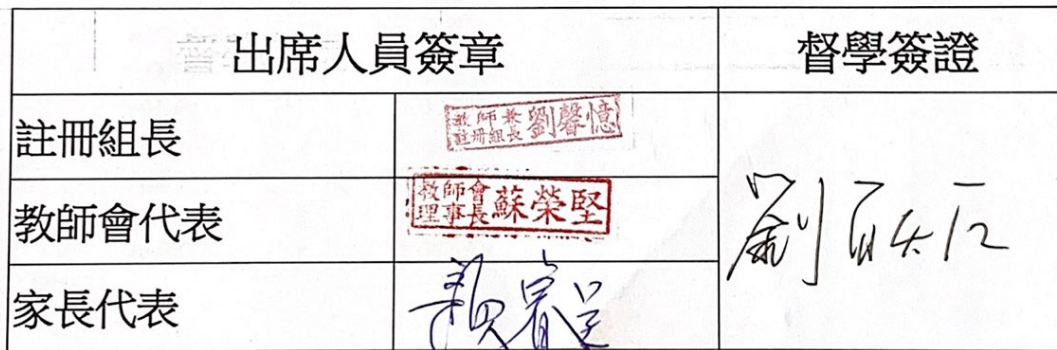 出席人員簽章 督學簽證
註冊組長 教師兼註冊組長 劉馨憶
教師會代表 教師會理事長 蘇榮堅
家長代表 賴睿
劉